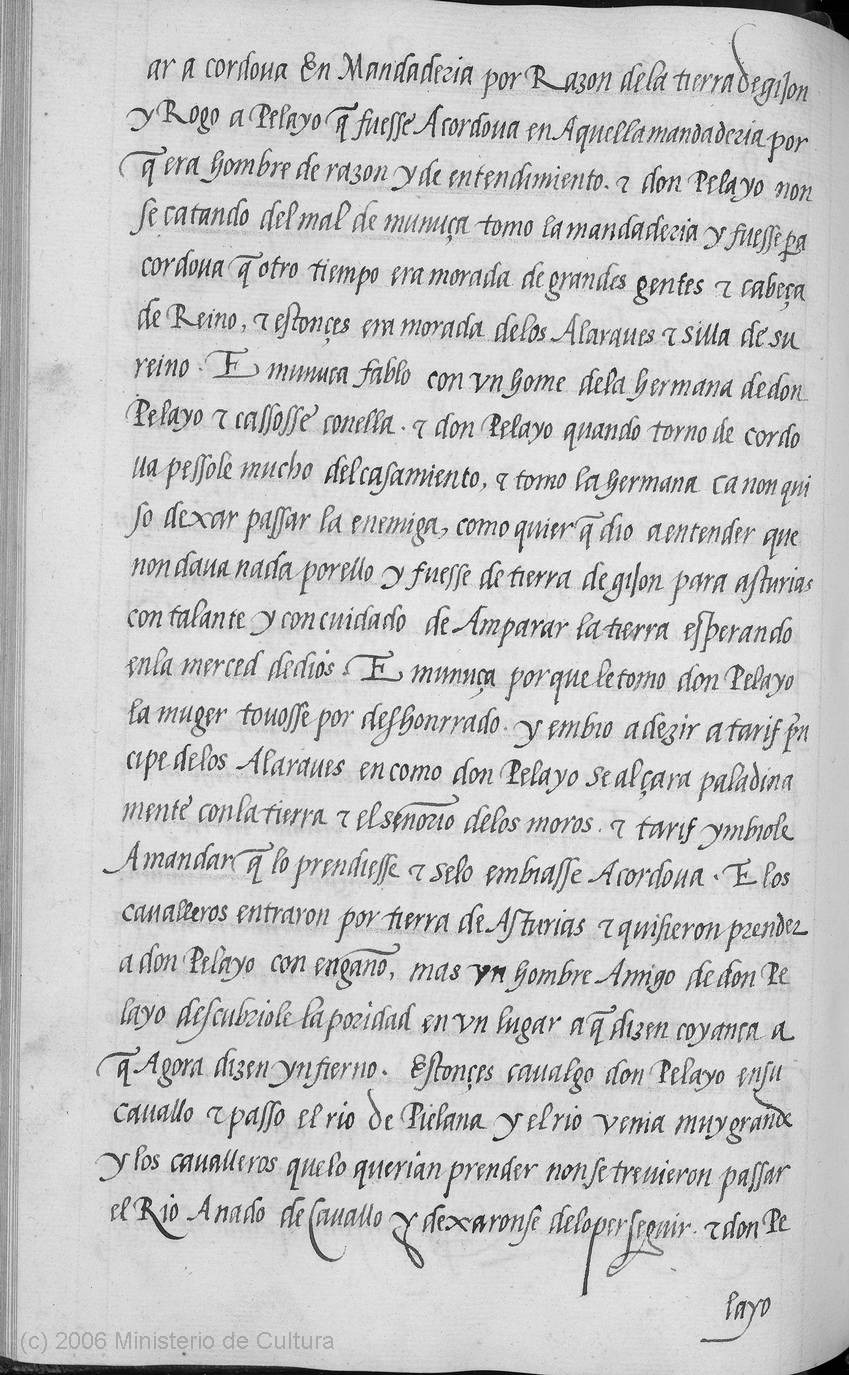 ar a cordoua En Mandaderia por Razon dela tierra de gijon
y Rogo a Pelayo q̃ fuesse A cordoua en Aquella mandaderia por
q̃ era hombre de razon y de entendimiento. & don Pelayo non
se catando del mal de munuça tomo la mandaderia y fuesse pa
cordoua q̃ otro tiempo era morada de grandes gentes & cabeça
de Reino, & estonçes era morada delos Alaraues & silla de su
reino. E munuca fablo con vn home dela hermana de don
Pelayo & cassosse conella. & don Pelayo quando torno de cordo
ua pessole mucho del casamiento, & tomo la hermana ca non qui
so dexar passar la enemiga, como quier q̃ dio a entender que
non daua nada por ello y fuesse de tierra de gijon para asturias
con talante y con cuidado de Amparar la tierra esperando
enla merced de dios. E munuça por que le tomo don Pelayo
la muger touosse por deshonrrado. y embio a dezir a tarif prĩ
cipe delos Alaraues en como don Pelayo se alçara paladina
mente conla tierra & el señorio delos moros. & tarif ymbiole
A mandar q̃ lo prendiesse & selo embiasse A cordoua. E los
caualleros entraron por tierra de Asturias & quisieron prender
a don Pelayo con engaño, mas vn hombre Amigo de don Pe
layo descubriole la poridad en vn lugar a q̃ dizen coyança a
q̃ Agora dizen ynfierno. Estonçes caualgo don Pelayo ensu
cauallo & passo el rio de Pielana y el rio venia muy grande
y los caualleros quelo querian prender non se treuieron passar
el Rio A nado de Cauallo y dexaronse delo perseguir. & don Pe
layo
(c) 2006 Ministerio de Cultura